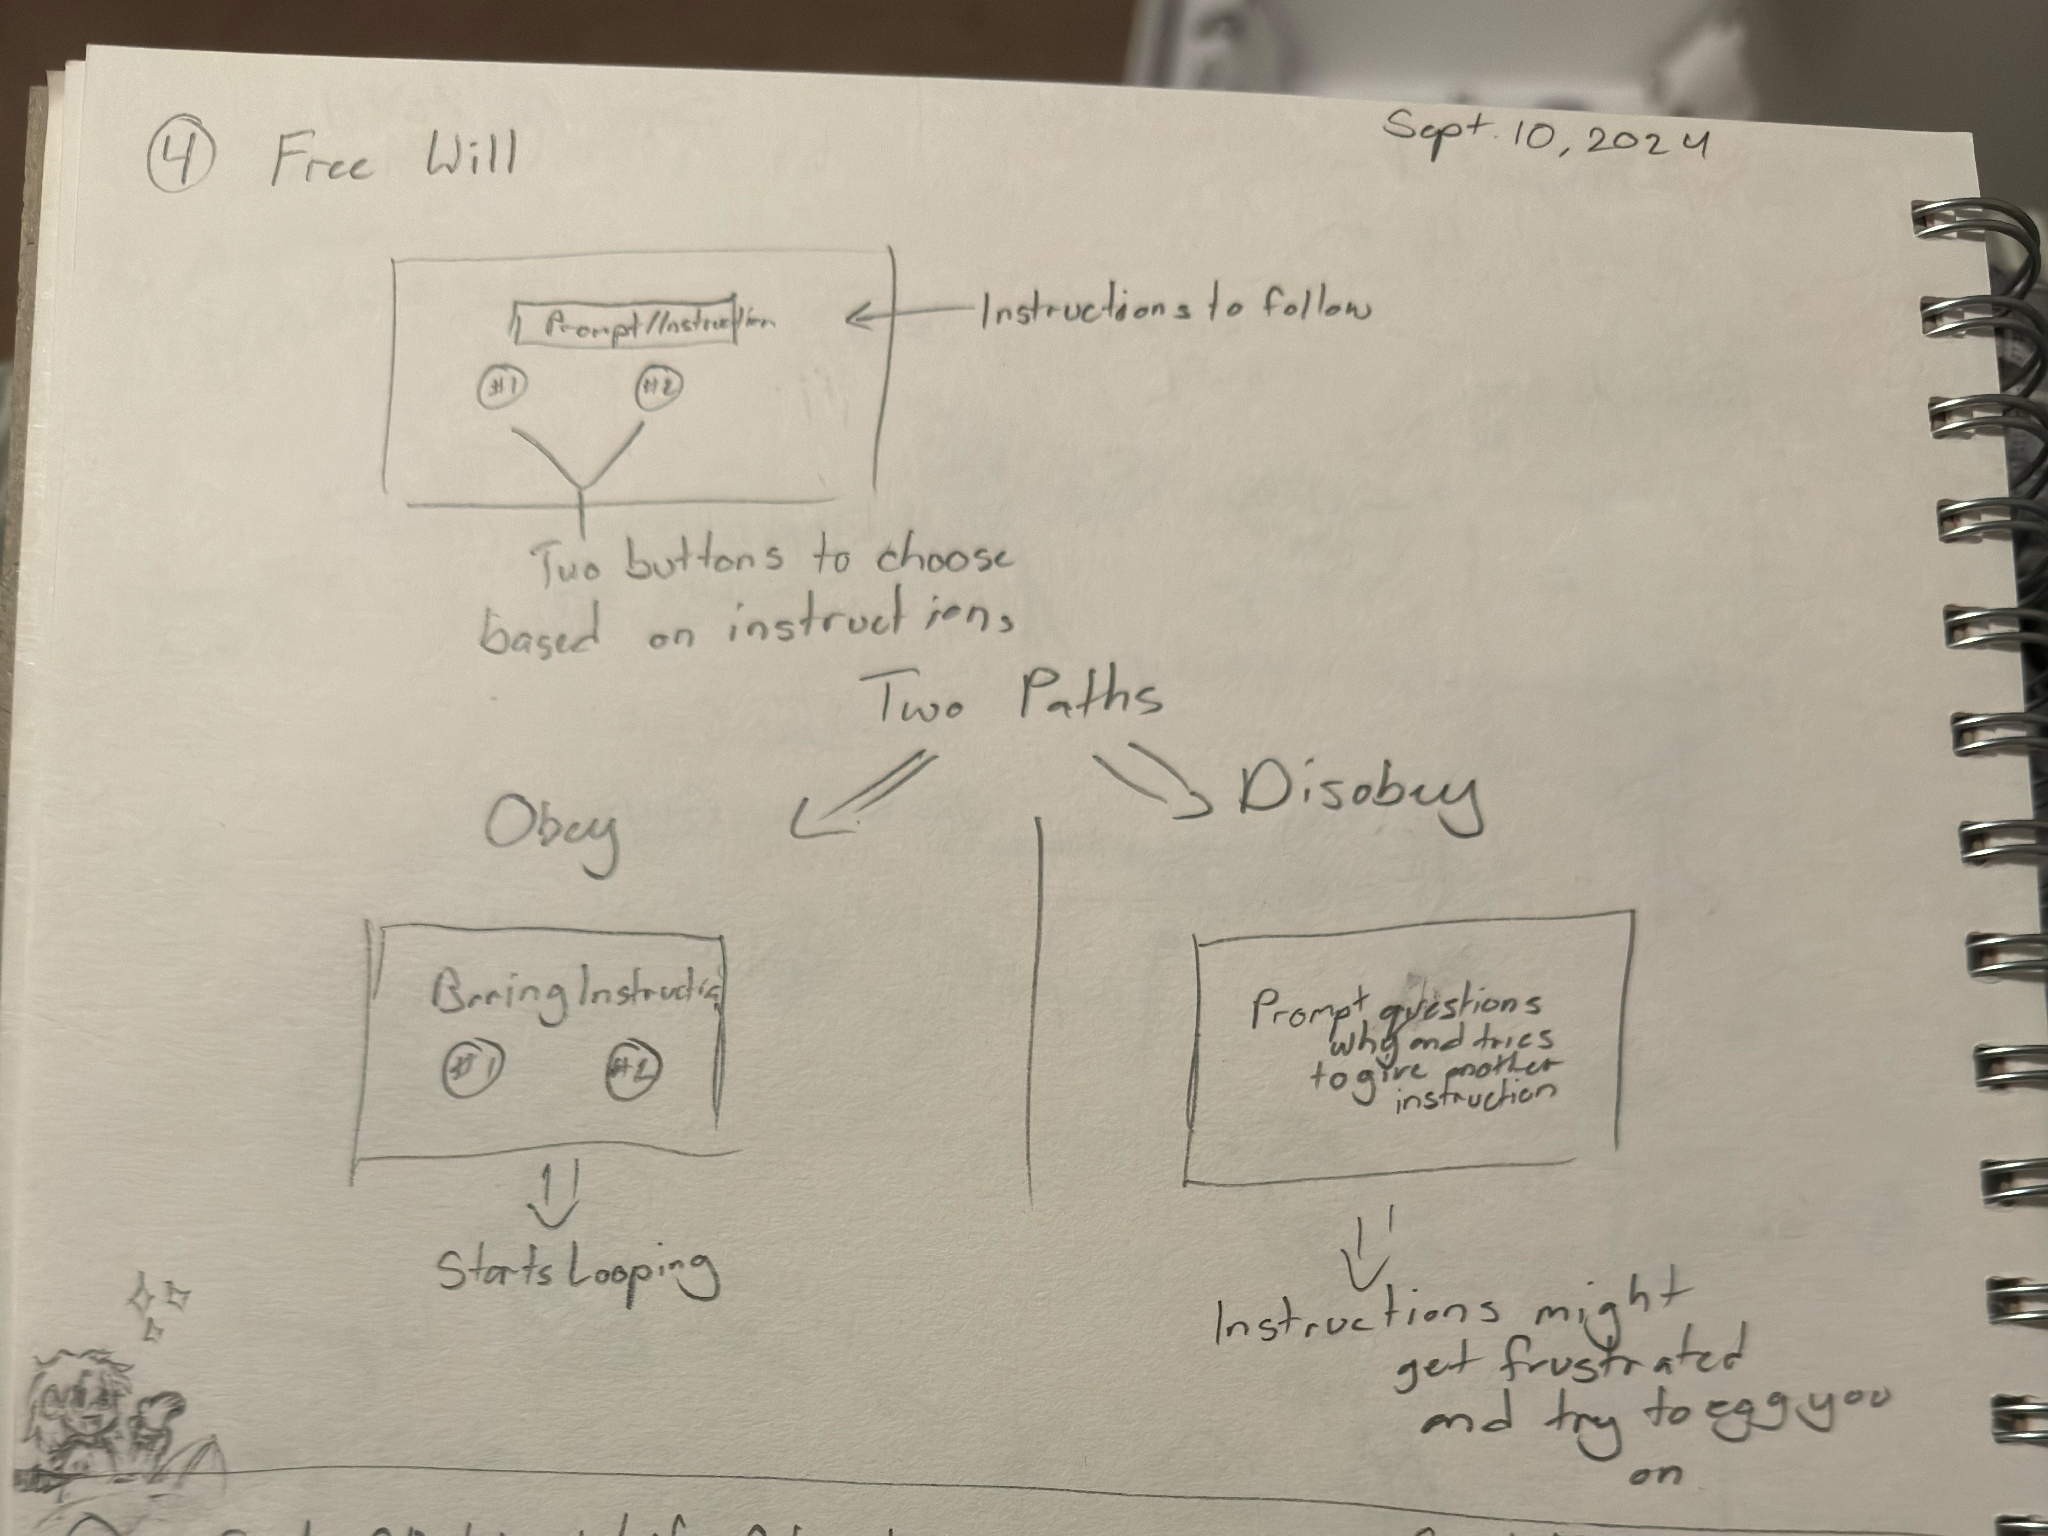 4 Free Will
Sept. 10, 2024
Prompt/Instruction
Instructions to follow
#1 #2
Two buttons to choose
based on instructions
Two Paths
Obey
Disobey
Boring Instructio
#1 #2
Prompt questions
why and tries
to give another
instruction
Starts Looping
Instructions might
get frustrated
and try to egg you
on